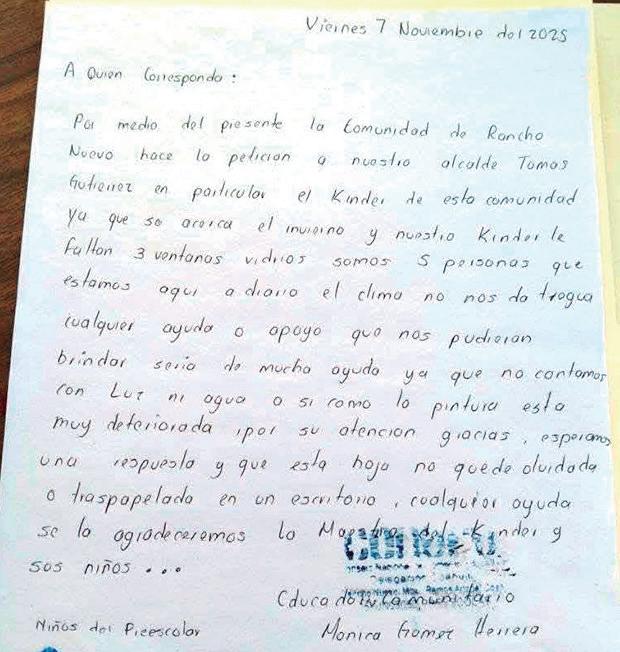 Viernes 7 Noviembre del 2025
A Quien Corresponda:
Por medio del presente la Comunidad de Rancho
Nuevo hace la peticion a nuestro alcalde Tomas
Gutierrez en particular el Kinder de esta comunidad
ya que se acerca el invierno y nuestro Kinder le
faltan 3 ventanas vidrios somos 5 personas que
estamos aqui a diario el clima no nos da tregua
cualquier ayuda o apoyo que nos pudieran
brindar seria de mucha ayuda ya que no contamos
con Luz ni agua a si como la pintura esta
muy deteriorada ,por su atencion gracias, esperamos
una respuesta y que esta hoja no quede olvidada
o traspapelada en un escritorio, cualquier ayuda
se la agradeceremos la Maestra del Kinder y
sus niños...
Educadora Comunitario
Niños del Preescolar
Monica Gomez Herrera